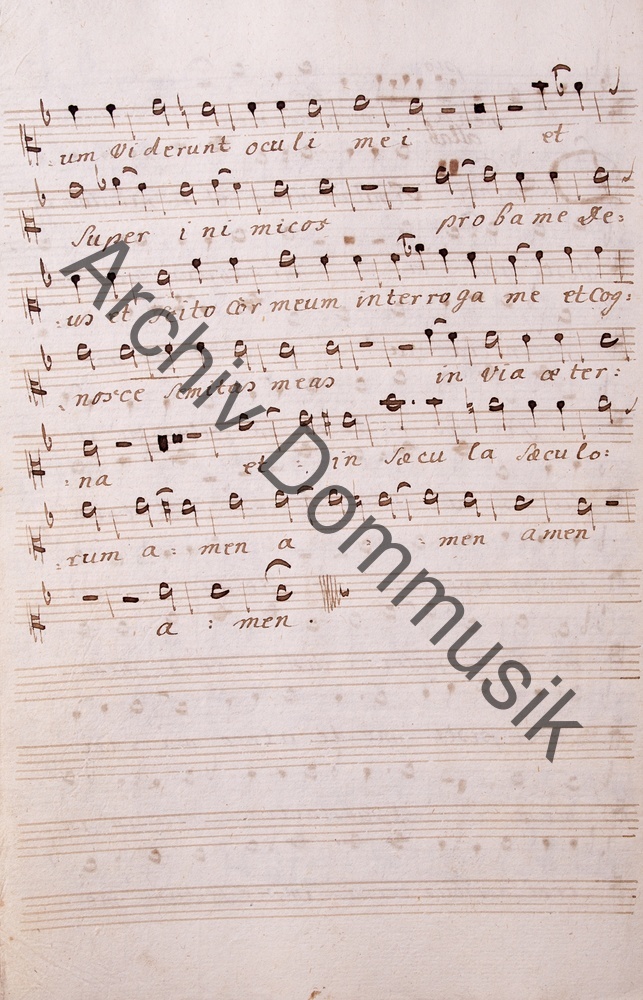 um viderunt oculi mei et
Super inimicos proba me De:
:us et scito Cor meum interroga me et Cog:
:nosce semitas meas in via æter:
:na et : in sæcula sæculo:
:rum a: men a : : men amen
a : men .
Archiv Dommusik